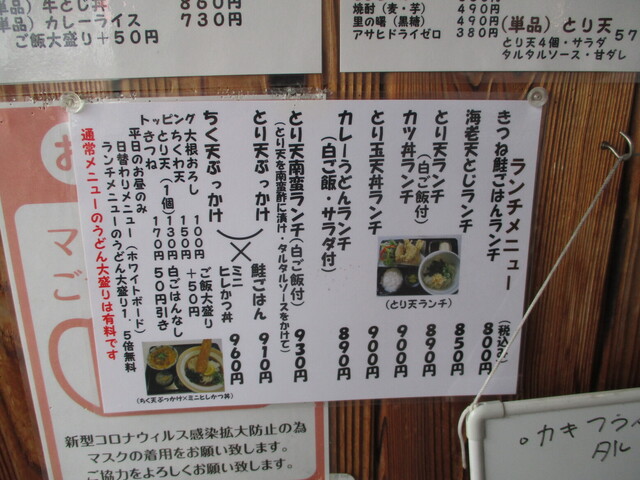 (単品) 牛とじ丼 860円
(単品) カレーライス 730円
ご飯大盛り+50円
焼酎 (麦・芋) 490円
里の曙 (黒糖) 490円
アサヒドライゼロ 380円
(単品) とり天
とり天4個・サラダ
タルタルソース・甘ダレ
57
ランチメニュー
(税込み)
きつね鮭ごはんランチ 800円
海老天とじランチ 850円
とり天ランチ (白ご飯付) 890円
カツ丼ランチ 900円
とり玉天丼ランチ 900円
カレーうどんランチ (白ご飯・サラダ付) 890円
とり天南蛮ランチ (白ご飯付) 930円
(とり天を南蛮酢に漬け・タルタルソースをかけて)
とり天ぶっかけ
ちく天ぶっかけ
×
鮭ごはん 910円
ミニヒレかつ丼 960円
トッピング
大根おろし 100円
ちくわ天 150円
とり天 (1個) 130円
きつね 170円
ご飯大盛り +50円
白ごはんなし 50円引き
平日のお昼のみ
日替わりメニュー (ホワイトボード)
ランチメニューのうどん大盛り1.5倍無料
通常メニューのうどん大盛りは有料です
(とり天ランチ)
(ちく天ぶっかけ×ミニヒレかつ丼)
お
マ
ご
新型コロナウィルス感染拡大防止の為
マスクの着用をお願い致します。
ご協力をよろしくお願い致します。
。カキフラ
タル